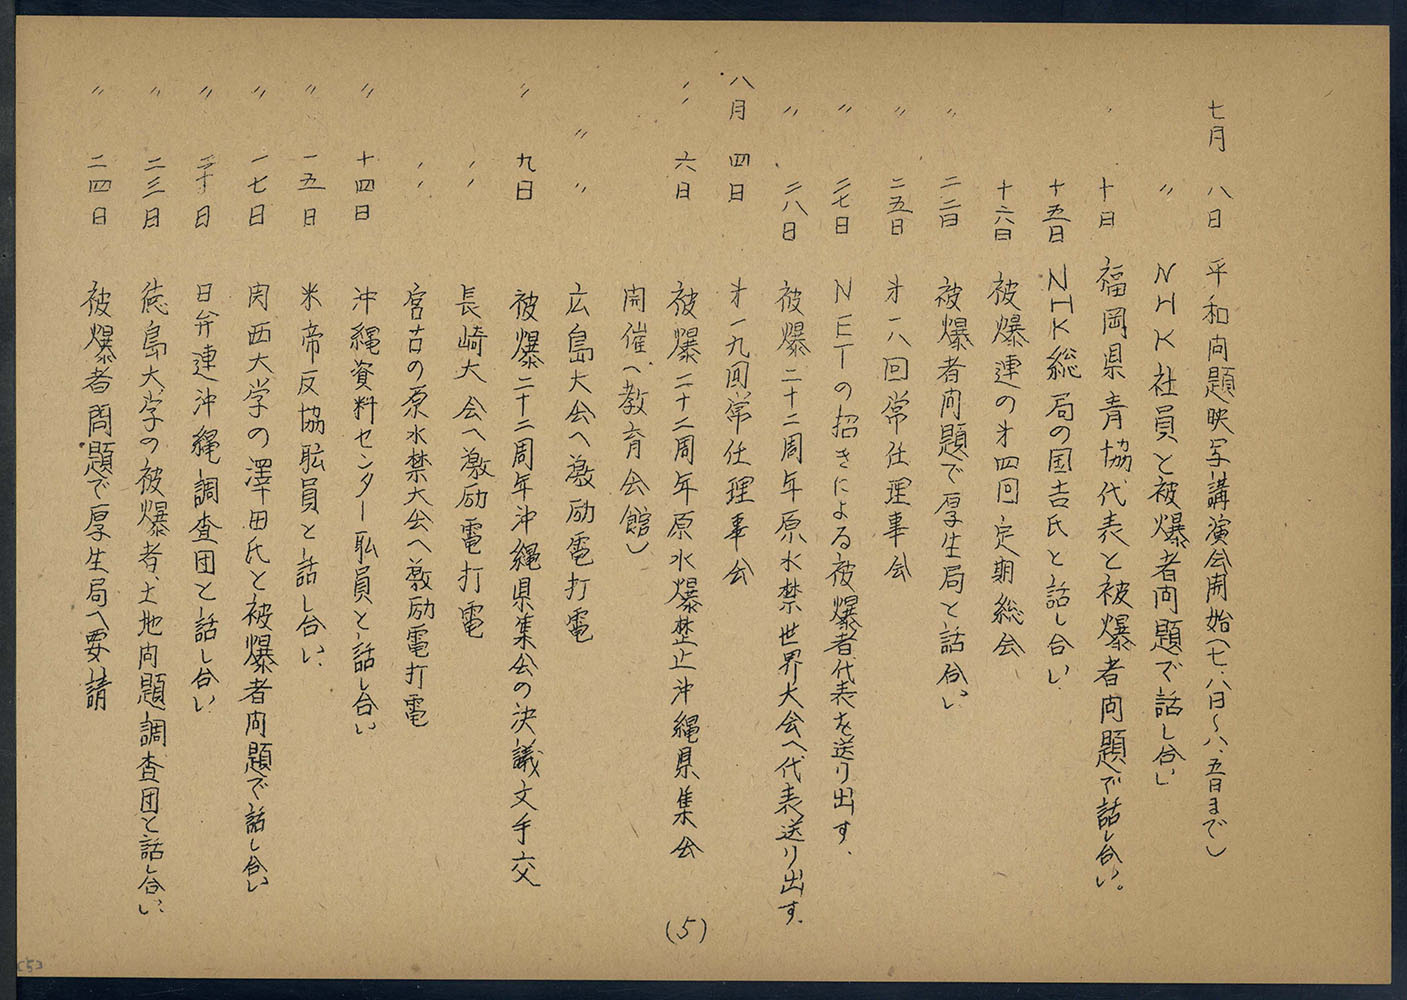 七月 八日 平和问題映写講演会開始(七、八日〜八、五日まで)
〃 NHK社員と被爆者问題で話し合い
〃 十日 福岡県青協代表と被爆者问題で話し合い。
十五日 NHK総局の国吉氏と話し合い
十六日 被爆連の才四回定期総会
〃 二二日 被爆者问題で厚生局と話合い
〃 二五日 才一八回常任理事会
〃 二七日 NETの招きによる被爆者代表を送り出す、
〃 二八日 被爆二十二周年原水禁世界大会へ代表送り出す、
八月 四日 才一九回常任理事会
〃 六日 被爆二十二周年原水爆禁止沖縄県集会
開催(教育会館)
〃 〃 広島大会へ激励電打電
〃 九日 被爆二十二周年沖縄県集会の決議文手交
〃 長崎大会へ激励電打電
〃 宮古の原水禁大会へ激励電打電
〃 十四日 沖縄資料センター耺員と話し合い
〃 一五日 米帝反協耺員と話し合い、
〃 一七日 関西大学の澤田氏と被爆者问題で話し合い
〃 二十日 日弁連沖縄調査団と話し合い
〃 二三日 徳島大学の被爆者、土地问題調査団と話し合い、
〃 二四日 被爆者問題で厚生局へ要請
(5)